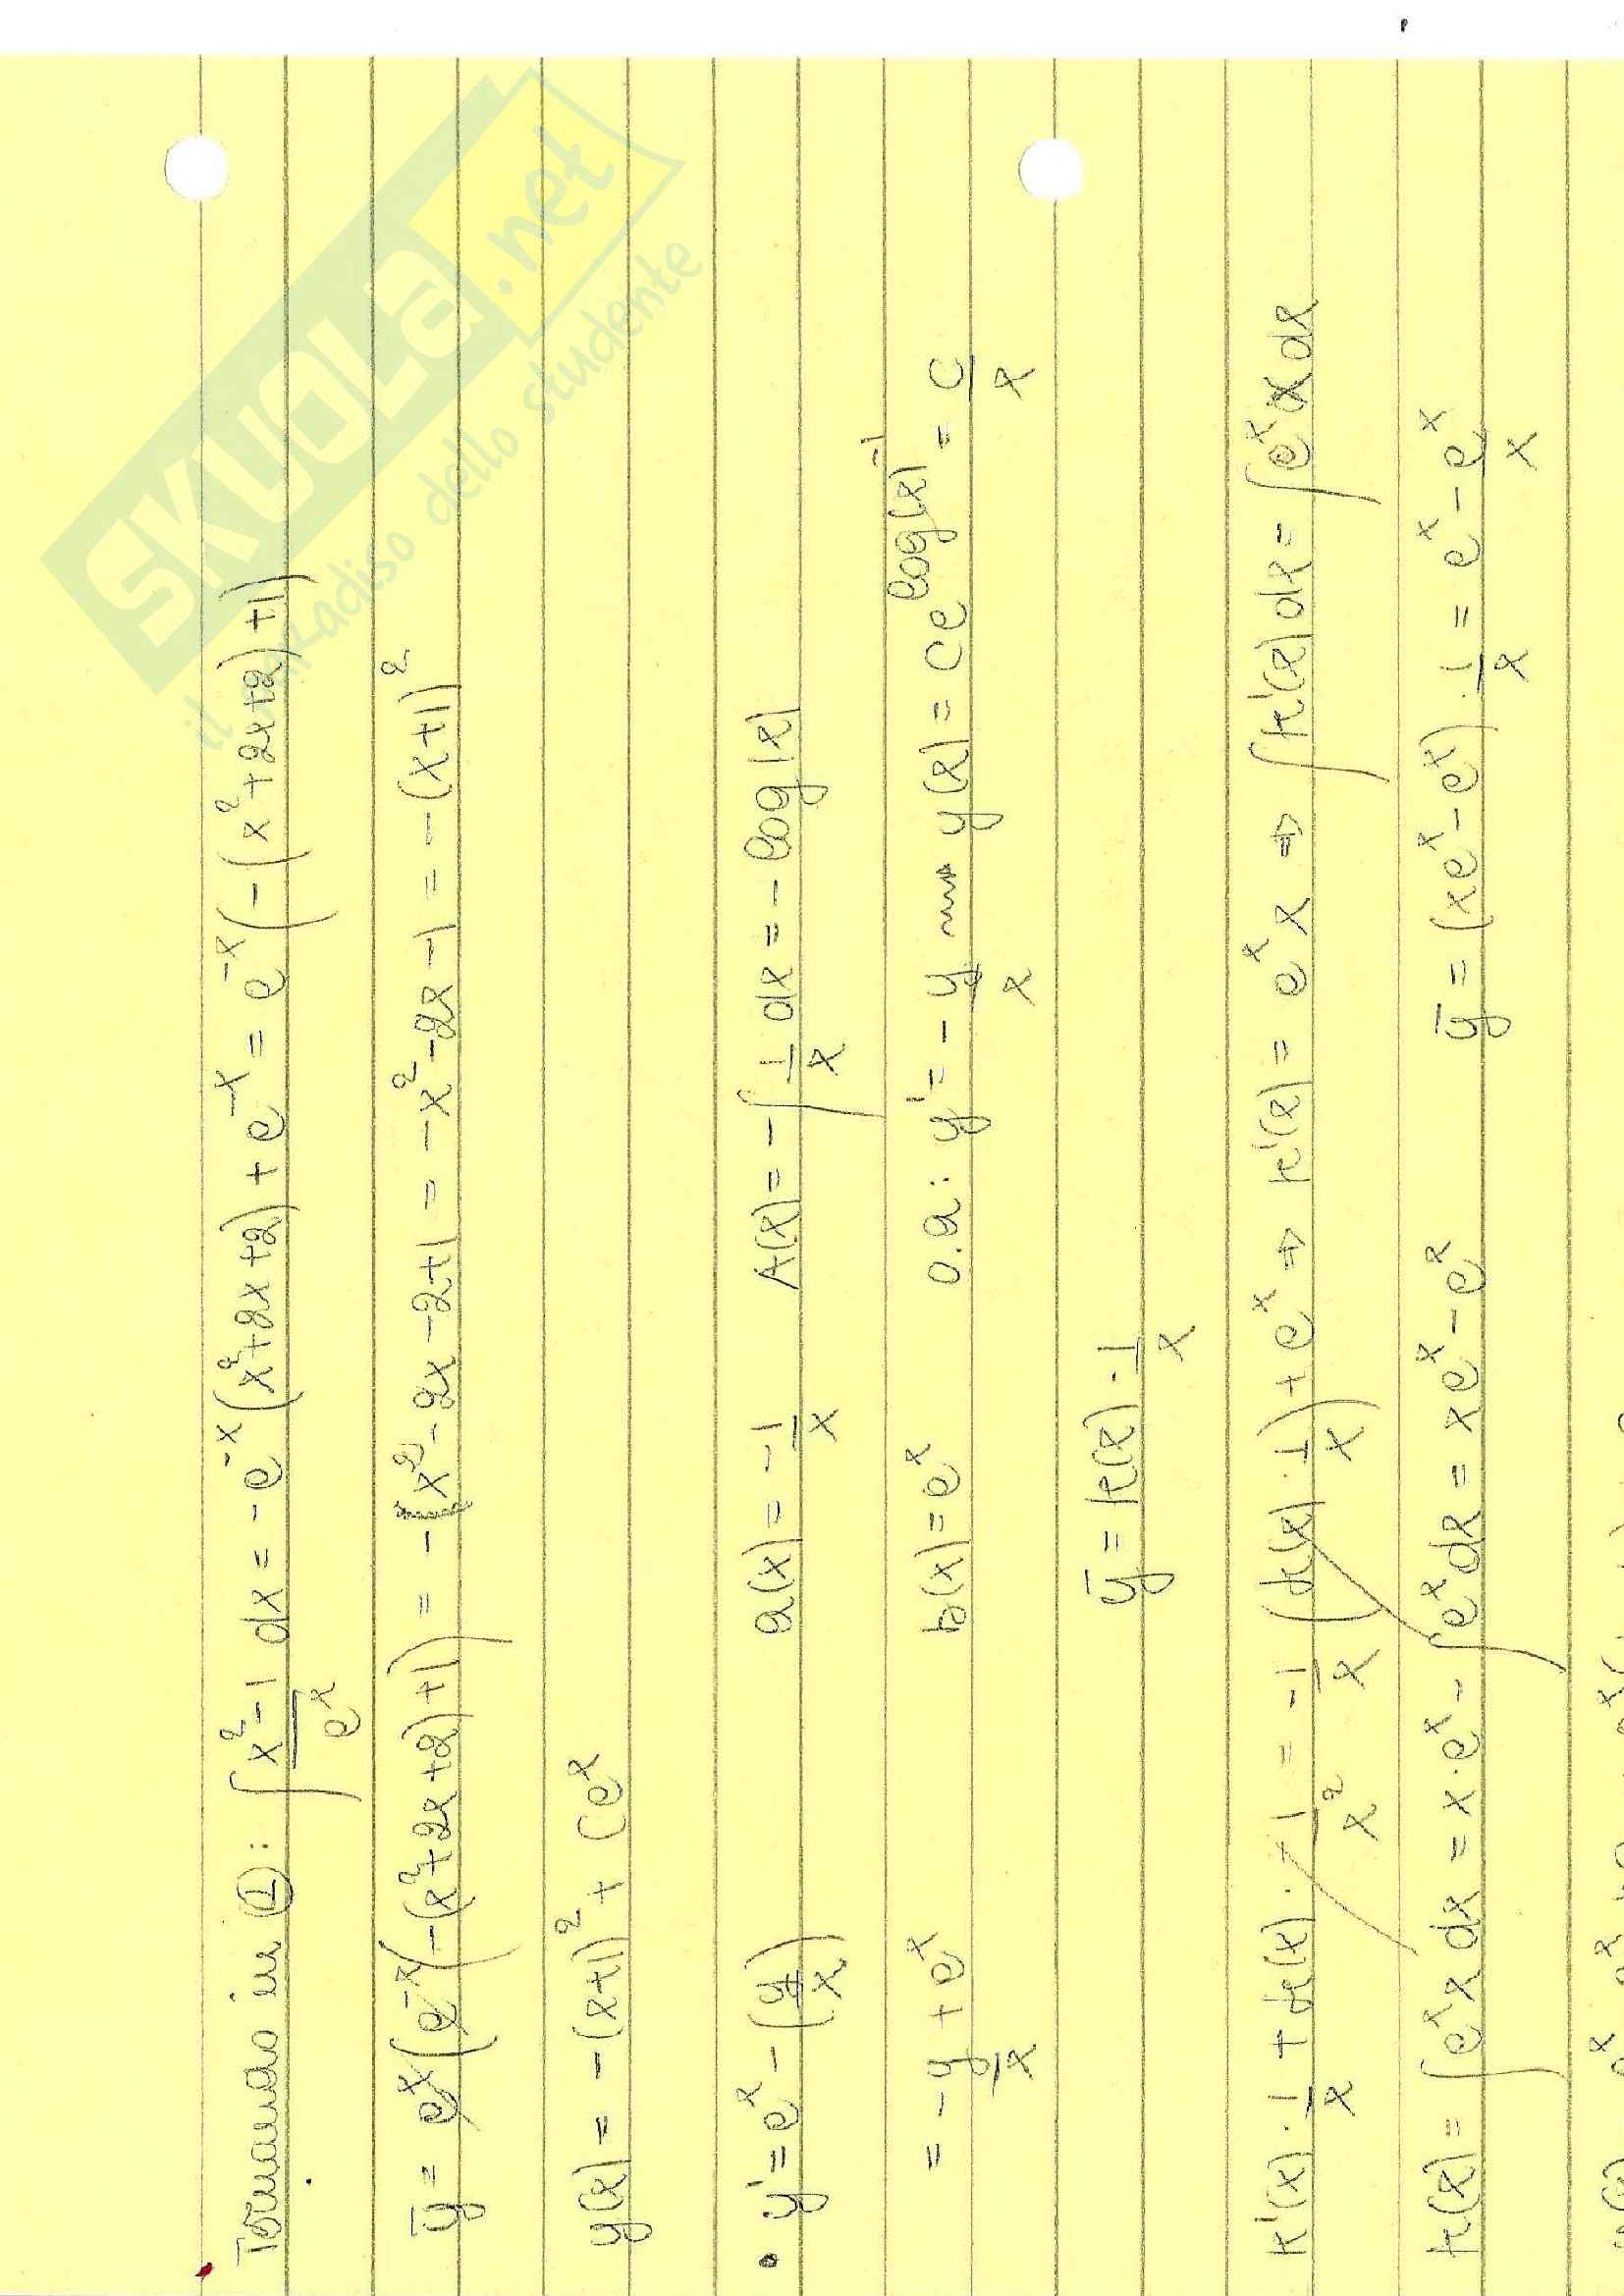 Tornando in ①: ∫ x²-1/eˣ dx = -e⁻ˣ(x²+2x+2) + e⁻ˣ = e⁻ˣ(-(x²+2x+2)+1)
ȳ = eˣ(e⁻ˣ(-(x²+2x+2)+1)) = -x²-2x-2+1 = -x²-2x-1 = -(x+1)²
y(x) = -(x+1)² + Ceˣ
• y' = eˣ - (y/x) a(x) = -1/x A(x) = -∫ 1/x dx = -log|x|
= -y/x + eˣ b(x) = eˣ o.a: y' = -y/x ⇝ y(x) = Ce^(log|x|⁻¹) = C/x
ȳ = k(x)·1/x
k'(x)·1/x + k(x)·-1/x² = -1/x (k(x)·1/x) + eˣ ⇒ k'(x) = eˣx ⇒ ∫k'(x)dx = ∫eˣxdx
k(x) = ∫eˣxdx = x·eˣ - ∫eˣdx = xeˣ - eˣ ȳ = (xeˣ-eˣ)·1/x = eˣ - eˣ/x
SKUOLA.net
il paradiso dello studente